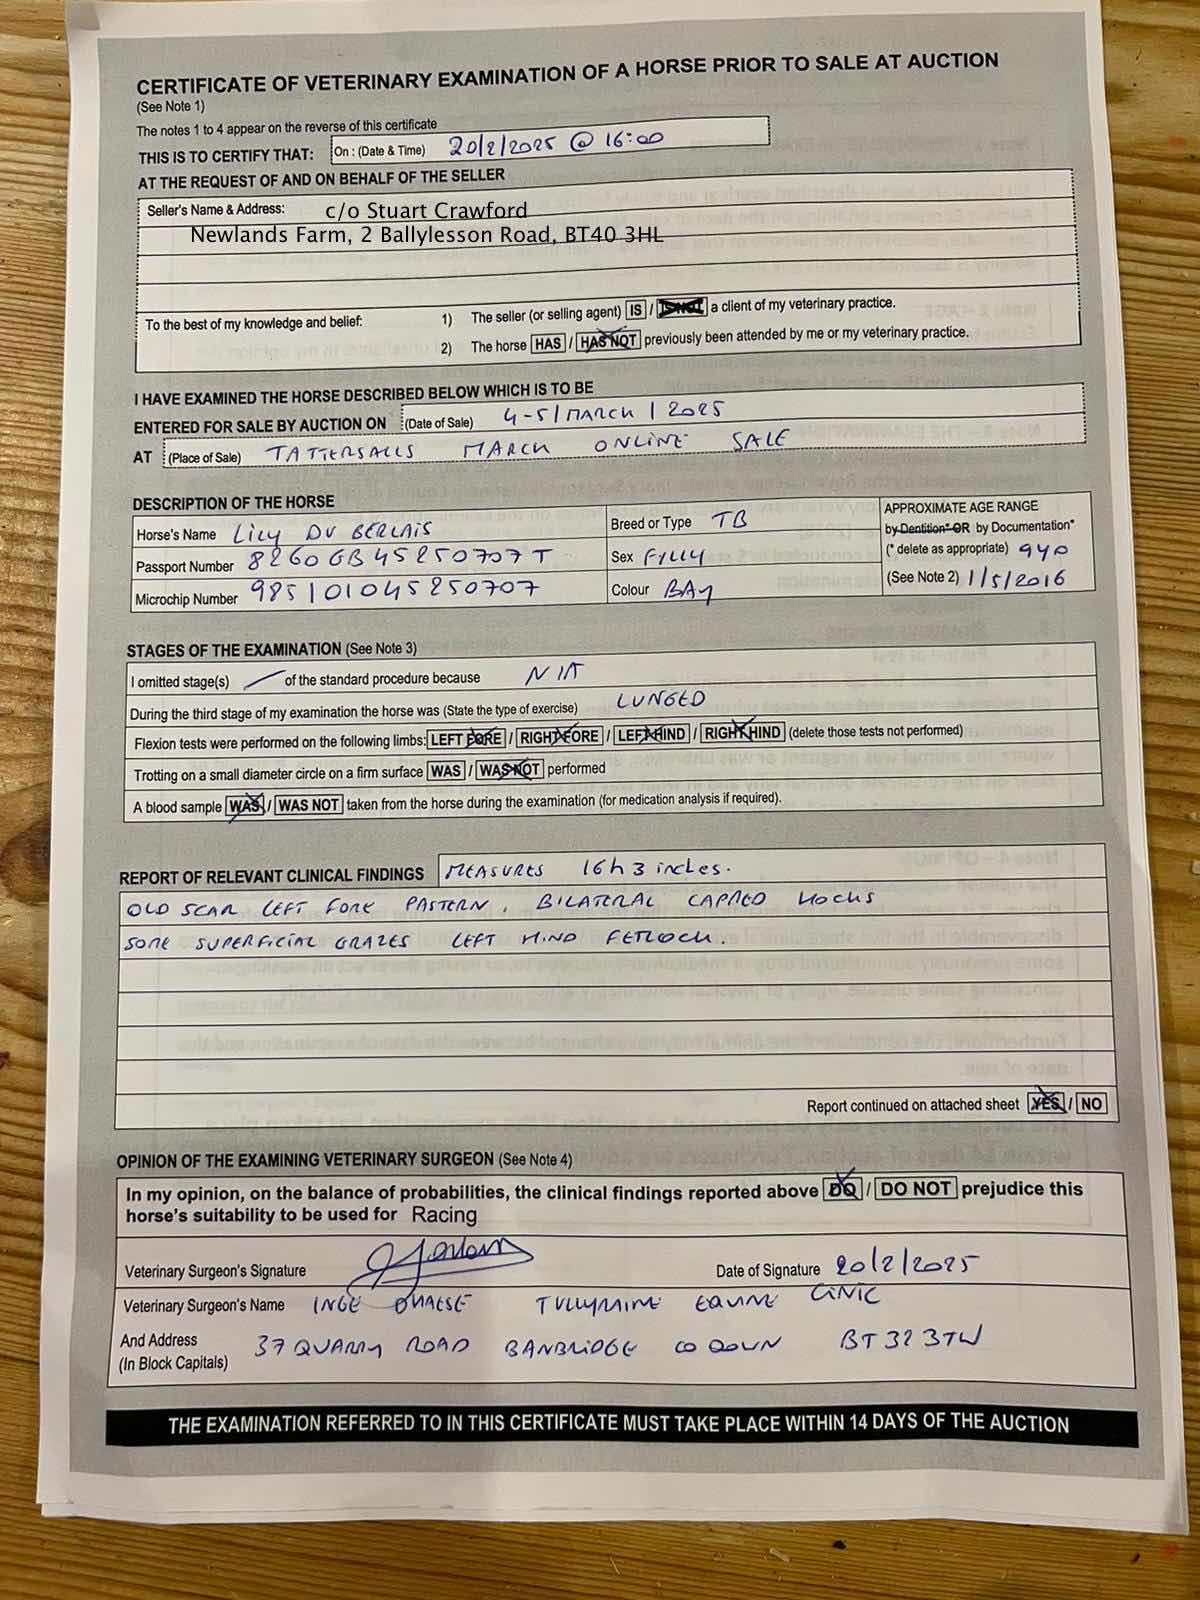 CERTIFICATE OF VETERINARY EXAMINATION OF A HORSE PRIOR TO SALE AT AUCTION
(See Note 1)
The notes 1 to 4 appear on the reverse of this certificate
THIS IS TO CERTIFY THAT: On : (Date & Time) 20/2/2025 @ 16:00
AT THE REQUEST OF AND ON BEHALF OF THE SELLER
Seller's Name & Address: c/o Stuart Crawford
Newlands Farm, 2 Ballylesson Road, BT40 3HL
To the best of my knowledge and belief: 1) The seller (or selling agent) IS / IS NOT a client of my veterinary practice.
2) The horse HAS / HAS NOT previously been attended by me or my veterinary practice.
I HAVE EXAMINED THE HORSE DESCRIBED BELOW WHICH IS TO BE
ENTERED FOR SALE BY AUCTION ON (Date of Sale) 4-5/MARCH/2025
AT (Place of Sale) TATTERSALLS MARCH ONLINE SALE
DESCRIPTION OF THE HORSE
Horse's Name LILY DU BERLAIS Breed or Type TB
Passport Number 8260GB45250707T Sex FILLY
Microchip Number 985101045250707 Colour BAY
APPROXIMATE AGE RANGE
by Dentition* OR by Documentation*
(* delete as appropriate) 9yo
(See Note 2) 1/5/2016
STAGES OF THE EXAMINATION (See Note 3)
I omitted stage(s) — of the standard procedure because N/A
During the third stage of my examination the horse was (State the type of exercise) LUNGED
Flexion tests were performed on the following limbs: LEFT FORE / RIGHT FORE / LEFT HIND / RIGHT HIND (delete those tests not performed)
Trotting on a small diameter circle on a firm surface WAS / WAS NOT performed
A blood sample WAS / WAS NOT taken from the horse during the examination (for medication analysis if required).
REPORT OF RELEVANT CLINICAL FINDINGS MEASURES 16h 3 inches.
OLD SCAR LEFT FORE PASTERN, BILATERAL CAPPED HOCKS
SOME SUPERFICIAL GRAZES LEFT HIND FETLOCK.
Report continued on attached sheet YES / NO
OPINION OF THE EXAMINING VETERINARY SURGEON (See Note 4)
In my opinion, on the balance of probabilities, the clinical findings reported above DO / DO NOT prejudice this
horse's suitability to be used for Racing
Veterinary Surgeon's Signature Date of Signature 20/2/2025
Veterinary Surgeon's Name INGE D'HAESE TULLYRAINE EQUINE CLINIC
And Address 37 QUARRY ROAD BANBRIDGE CO DOWN BT32 3TW
(In Block Capitals)
THE EXAMINATION REFERRED TO IN THIS CERTIFICATE MUST TAKE PLACE WITHIN 14 DAYS OF THE AUCTION